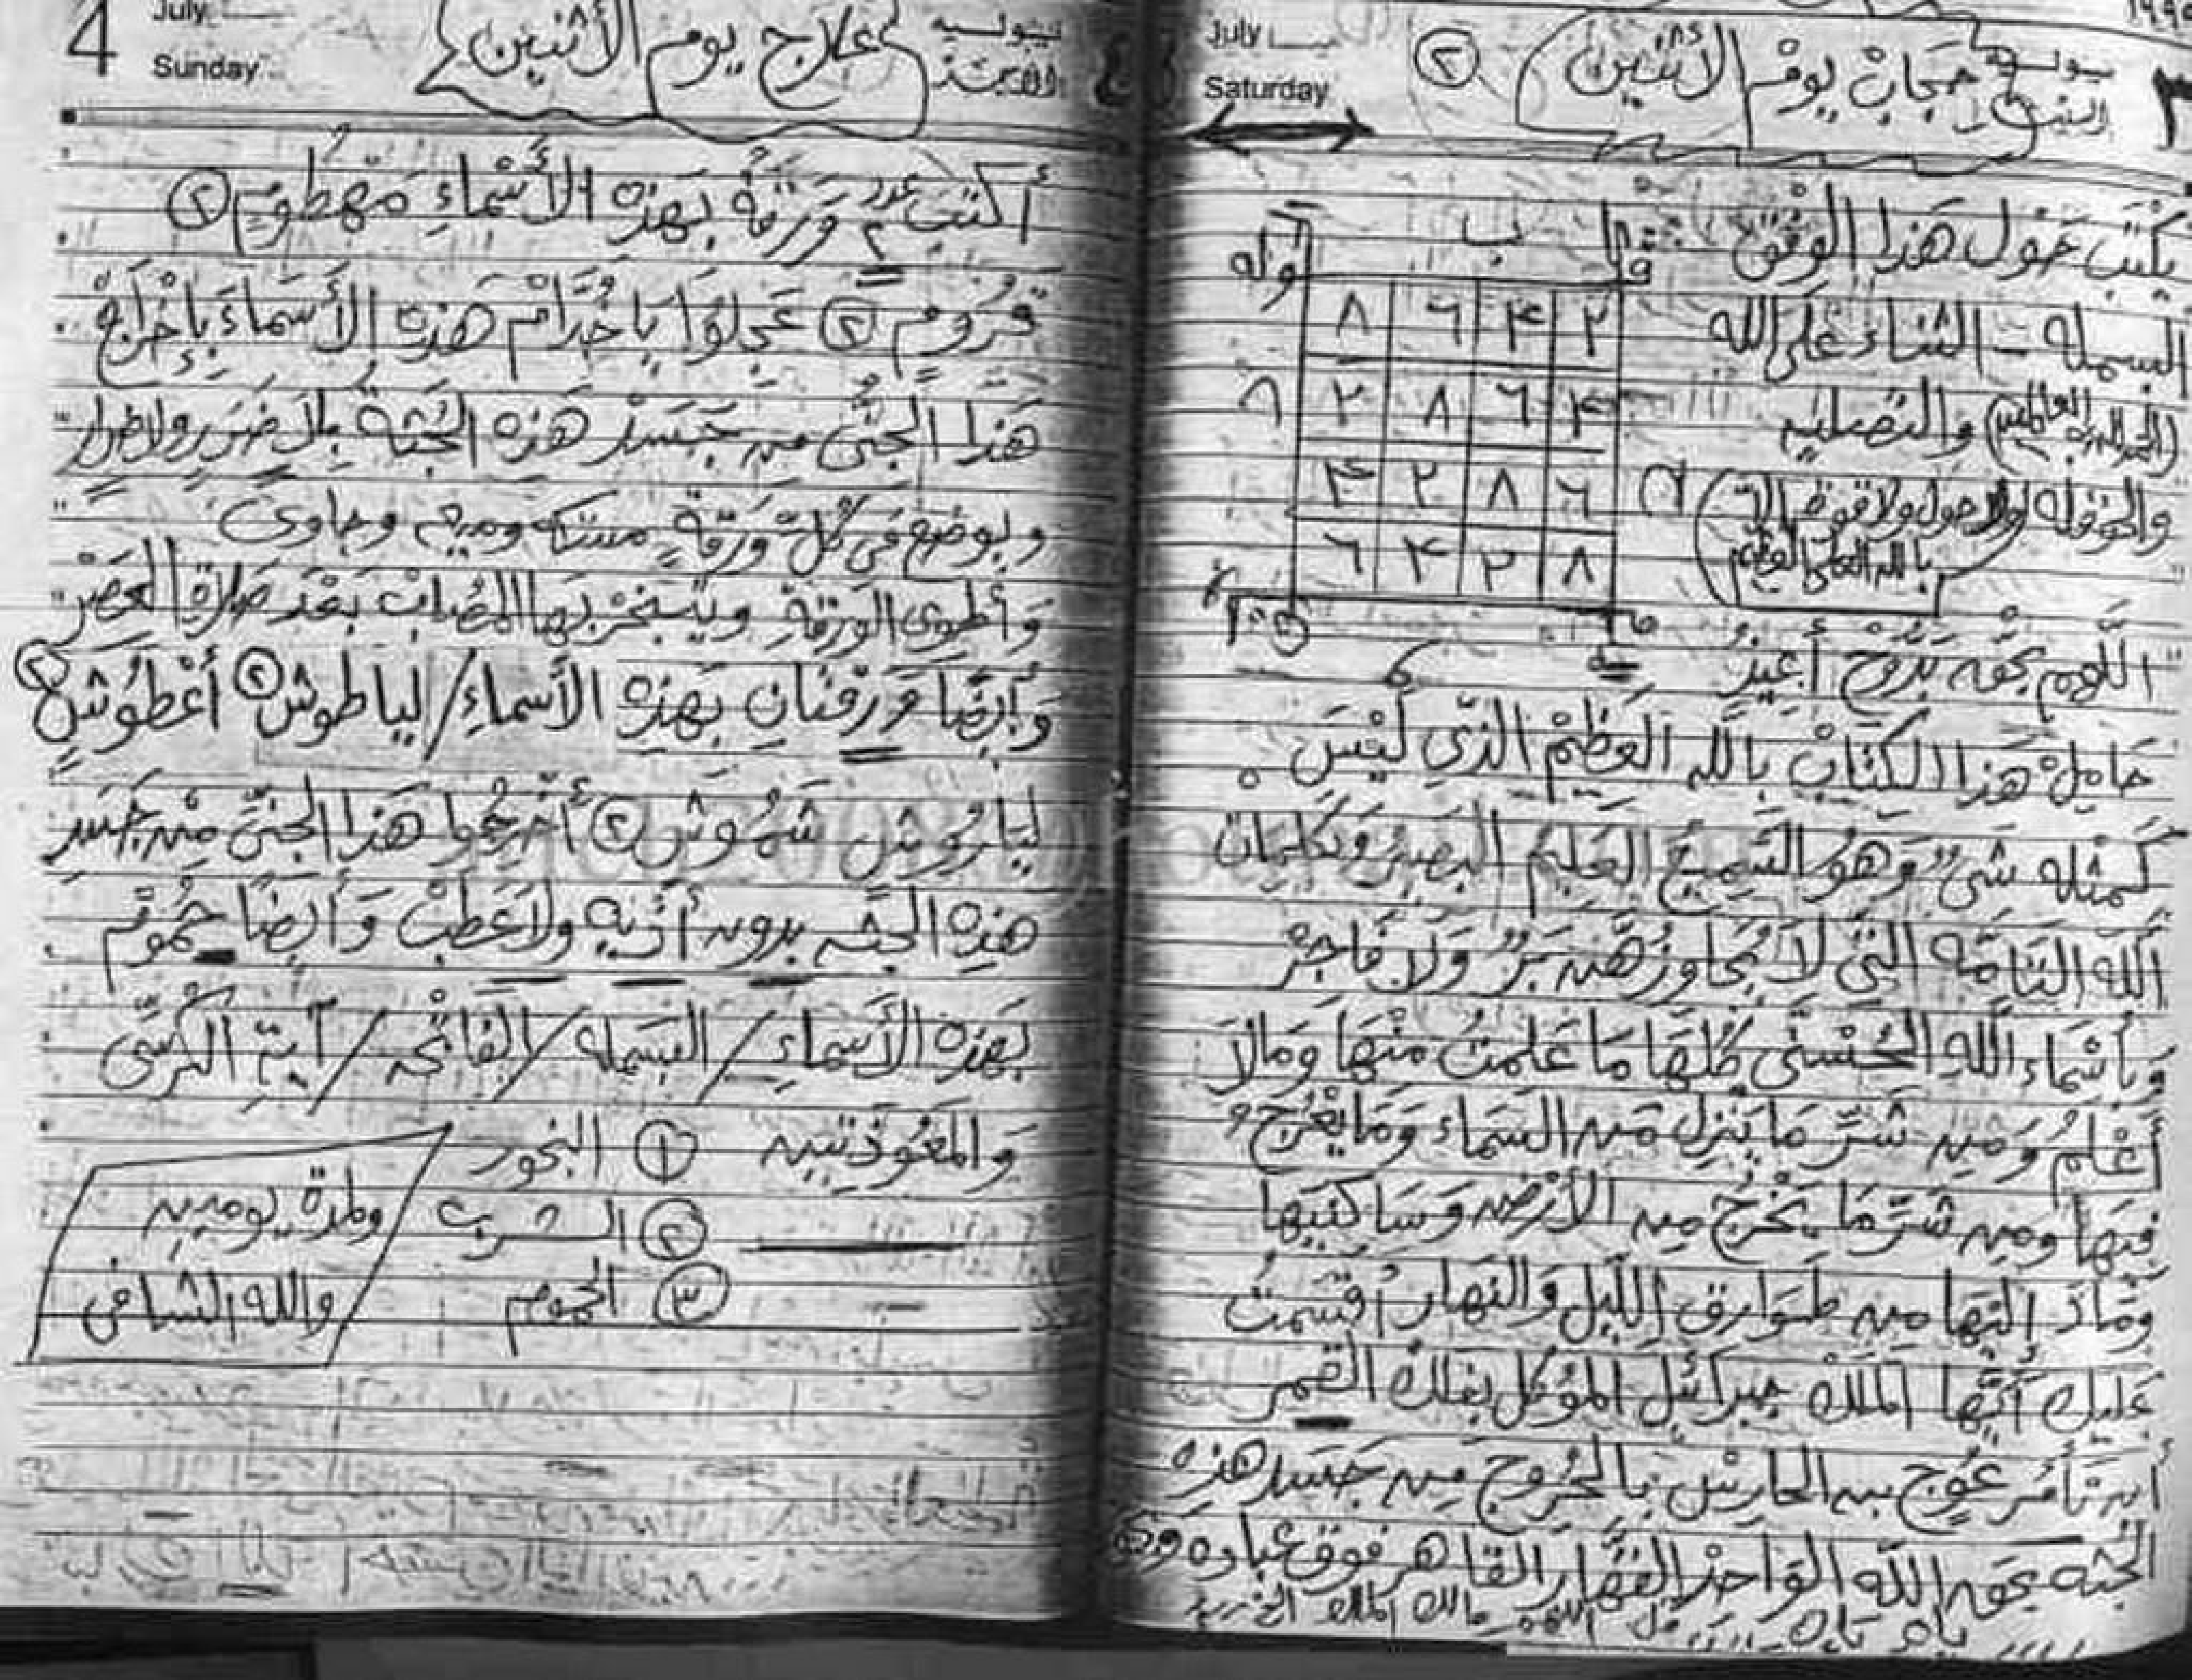 July يوليه
Saturday السبت
٣
حجاب يوم الأثنين ٢
يكتب حول هذا الوفق
البسمله - الثناء على الله
(الحمد لله رب العالمين) والتصليه
والحوقله (ولا حول ولا قوة إلا
بالله العلى العظيم)
قو له
٢ ٤ ٦ ٨
٤ ٦ ٨ ٢
٦ ٨ ٢ ٤
٨ ٢ ٤ ٦
اللهم بحق بدوح أعيذ
حامل هذا الكتاب بالله العظيم الذي ليس
كمثله شىء وهو السميع العليم البصير وبكلمات
الله التامه التى لا يجاوزهن بر ولا فاجر
وبأسماء الله الحسنى كلها ما علمت منها ومالا
أعلم ومن شر ما ينزل من السماء وما يعرج
فيها ومن شر ما يخرج من الأرض وساكنيها
إليها من طوارق الليل والنهار أقسمت
عليك أيها الملاك جبرائيل الموكل بفلك القمر
أن تأمر عوج بن الحارس بالخروج من جسد هذه
الجثه بحق الله الواحد القهار القاهر فوق عباده
4 July يوليه
Sunday الأحد
علاج يوم الأثنين
أكتب عدد ٢ ورقة بهذه الأسماء مهطوم ٢
قروم ٢ عجلوا يا خدام هذه الأسماء بإخراج
هذا الجنى من جسد هذه الجثة بلا ضرر ولا ضرار
ويوضع فى كل ورقة مستكه ومريم وجاوى
وأطوى الورقة ويتبخر بها المصاب بعد صلاة العصر
وأيضا ورقتان بهذه الأسماء / لياطوش ٢ أغطوش ٢
لياروش شموش ٢ أخرجوا هذا الجنى من جسد
هذه الجثه بدون أذيه ولا عطب وأيضا حموم
بهذه الأسماء / البسمله / الفاتحه / آية الكرسى
والمعوذتين ١ البخور
٢ الشرب
٣ الحموم
ولمدة يومين
والله الشافى